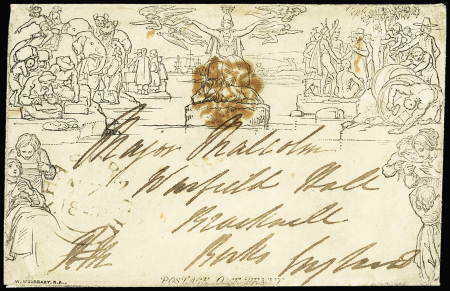 Major Malcolm
Warfield Hall
Bracknell
Berks England
W. MULREADY, R.A.
POSTAGE ONE PENNY